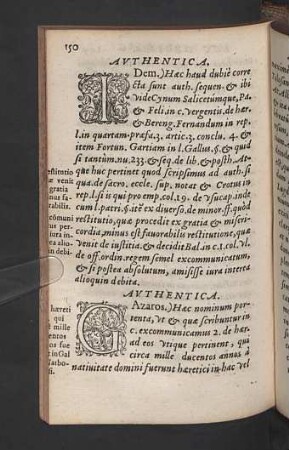 150
AVTHENTICA.
IDem.) Hæc haud dubiè corre
cta sunt auth. sequen. & ibi
vide Cynum Salicetumque, Pa.
& Feli. in c. vergentis. de hær.
& Bereng. Fernandum in rep.
l. in quartam. præfa. 3. artic. 3. conclu. 4. &
item Fortun. Gartiam in l. Gallus. §. & quid
si tantùm. nu. 233. & seq. de lib. & posth. At-
que huc pertinet quod scripsimus ad auth. si
qua. de sacro. eccle. sup. notat & Crotus in
rep. l. si is qui pro emp. col. 19. de vsucap. vnà
cum l. patri. §. ité ex diuerso. de minor. ff. quod
restitutio, quæ procedit ex gratia & miseri-
cordia, minus est fauorabilis restitutione, quæ
venit de iustitia, & decidit Bal. in c. 1. col. vl.
de off. ordin. regem semel excommunicatum,
& si postea absolutum, amisisse iura interea
alioquin debita.
AVTHENTICA.
GAzaros.) Hæc nominum por-
tenta, vt & quæ scribuntur in
c. excommunicamus 2. de hær.
ad eos vtique pertinent, qui
circa mille ducentos annos à
natiuitate domini fuerunt hæretici in hac vel
estitutio
æ venit
gratia
nus fa-
rabilis.
comuni
us per-
rura in-
ea alio-
in debi-
hæreti
qui
mille
entos
os fue
in Gal
arbo-
i.